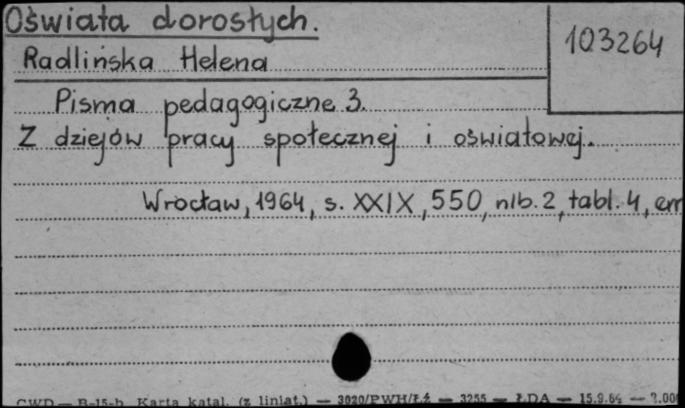 Oświata dorosłych.
103264
Radlińska Helena
Pisma pedagogiczne 3.
Z dziejów pracy społecznej i oświatowej.
Wrocław, 1964, s. XXIX, 550, nlb. 2, tabl. 4, err
CWD — B-15-b Karta katal. (z liniat.) — 3020/PWH/ŁŻ — 3255 — ŁDA — 15.9.64 —